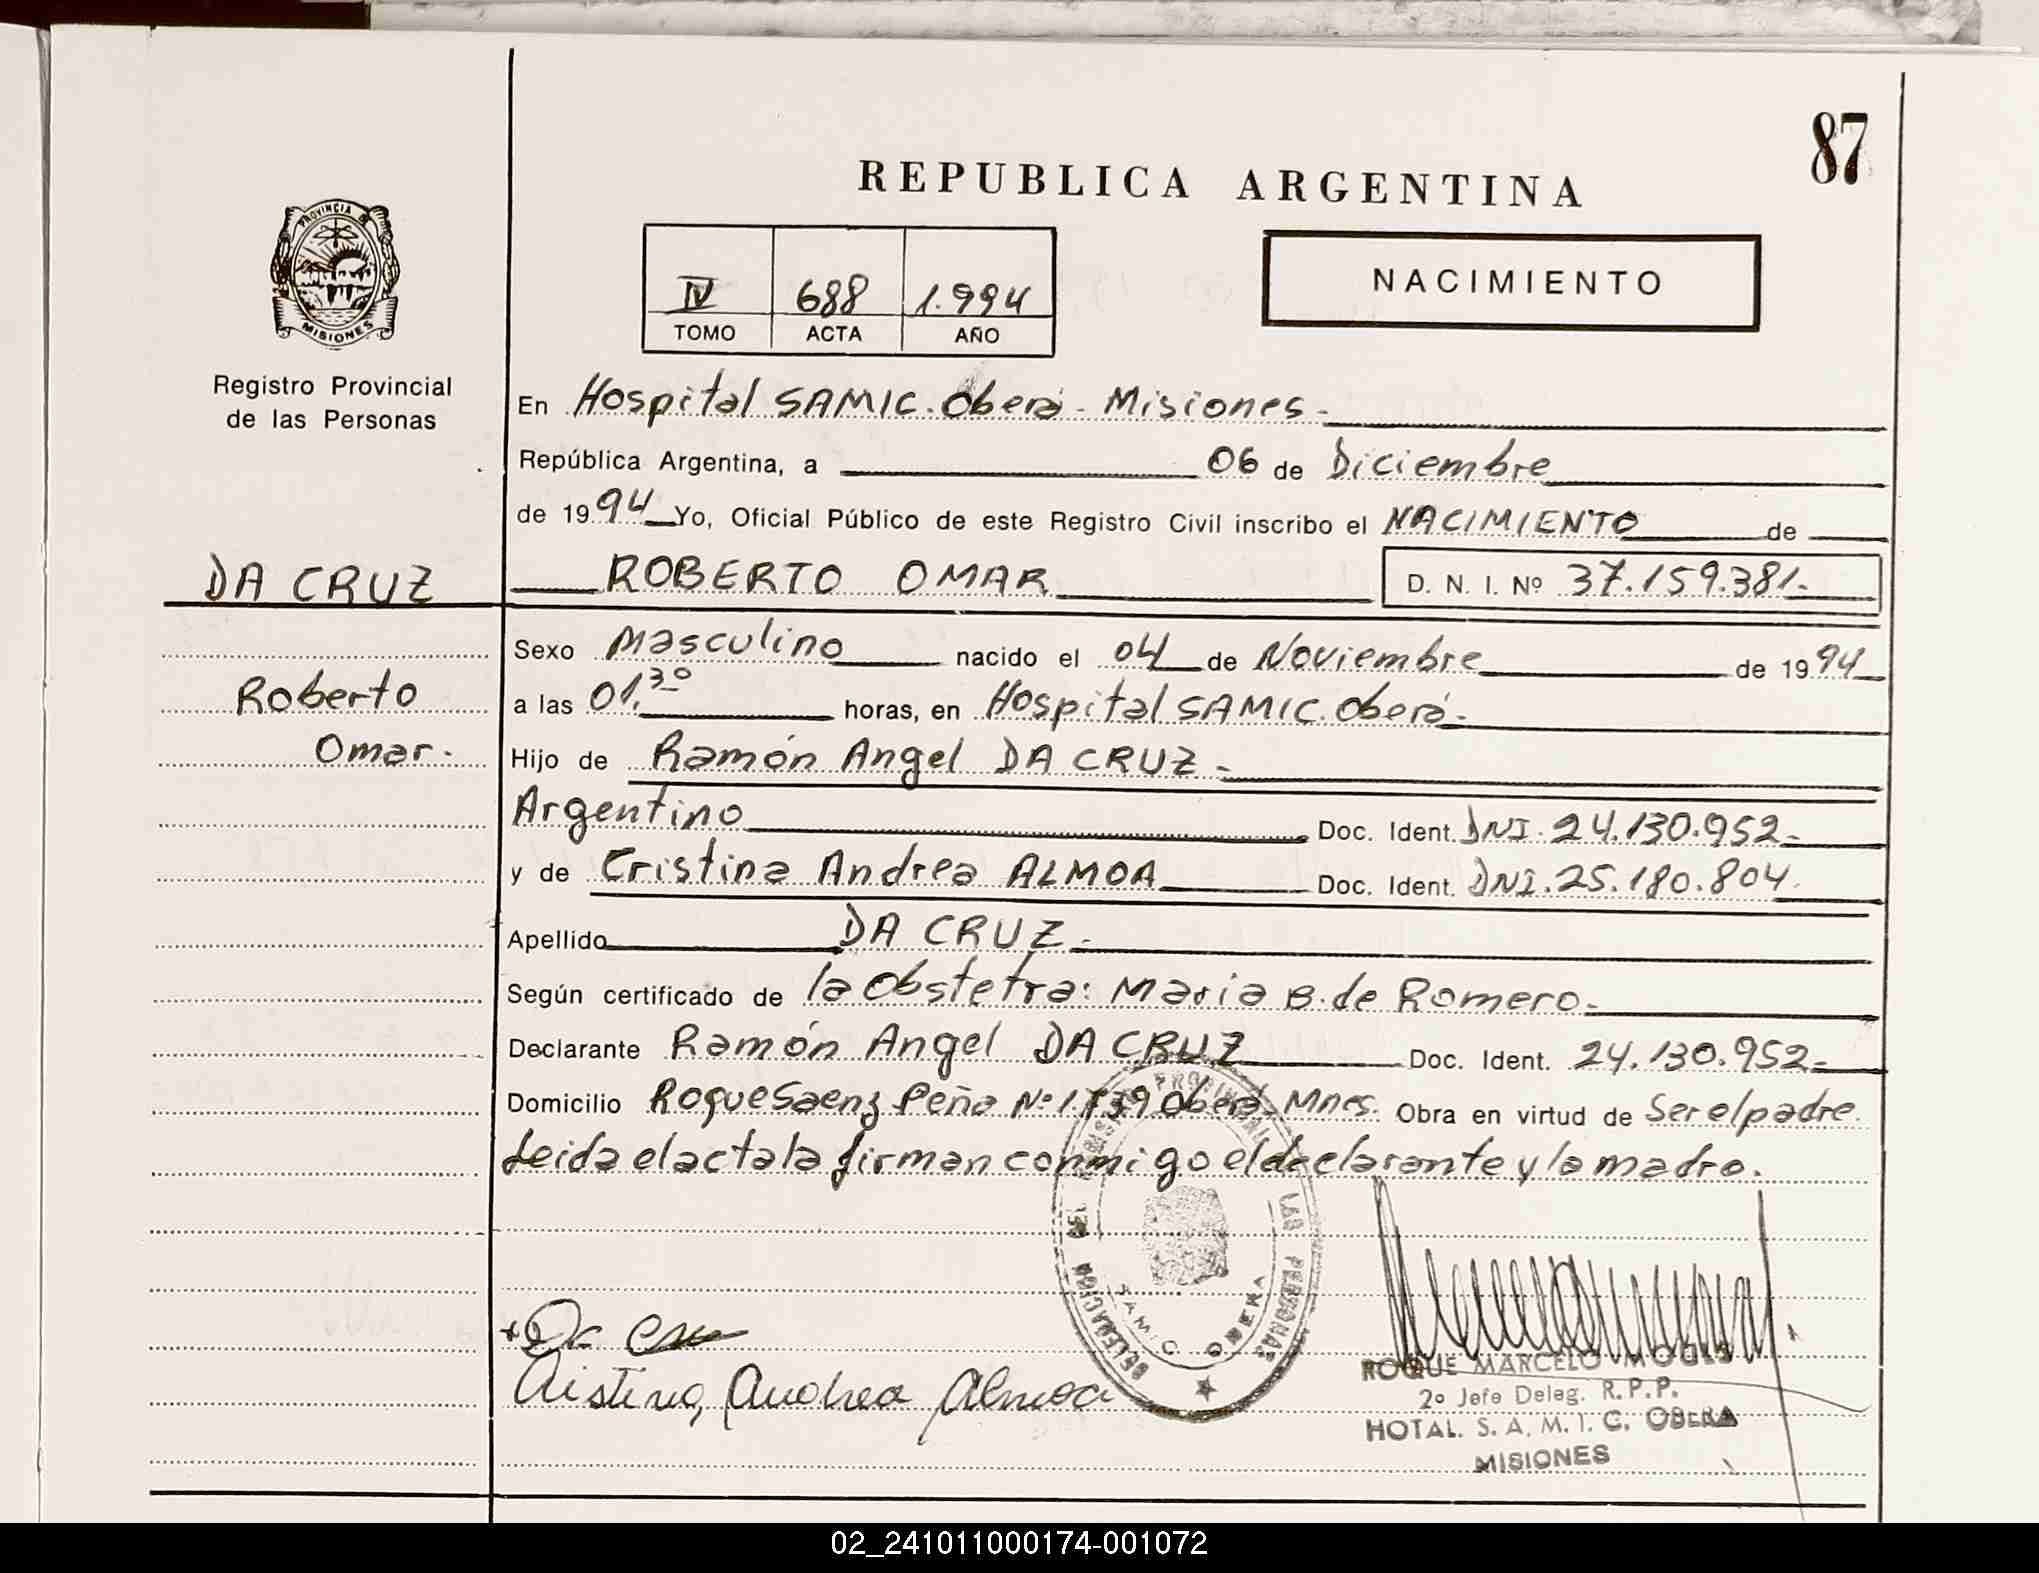 87
REPUBLICA ARGENTINA
PROVINCIA DE
MISIONES
IV 688 1.994
TOMO ACTA AÑO
NACIMIENTO
Registro Provincial
de las Personas
En Hospital SAMIC. Oberá - Misiones -
República Argentina, a 06 de Diciembre
de 1994 Yo, Oficial Público de este Registro Civil inscribo el NACIMIENTO de
DA CRUZ ROBERTO OMAR D. N. I. Nº 37.159.381.-
Sexo Masculino nacido el 04 de Noviembre de 1994
Roberto a las 01.30 horas, en Hospital SAMIC. Oberá.-
Omar.- Hijo de Ramón Angel DA CRUZ -
Argentino Doc. Ident. DNI. 24.130.952-
y de Cristina Andrea ALMOA Doc. Ident. DNI. 25.180.804.
Apellido DA CRUZ.-
Según certificado de la Obstetra: Maria B. de Romero.-
Declarante Ramón Angel DA CRUZ Doc. Ident. 24.130.952-
Domicilio Roque Saenz Peña Nº 1.739 Oberá - Mnes. Obra en virtud de Ser el padre.
Leida el acta la firman conmigo el declarante y la madre.
DELEGACION REGISTRO PROVINCIAL DE LAS PERSONAS
SAMIC OBERA
Da Cruz
Cristina Andrea Almoa
ROQUE MARCELO
2º Jefe Deleg. R.P.P.
HOTAL. S. A. M. I. C. OBERA
MISIONES
02_241011000174-001072